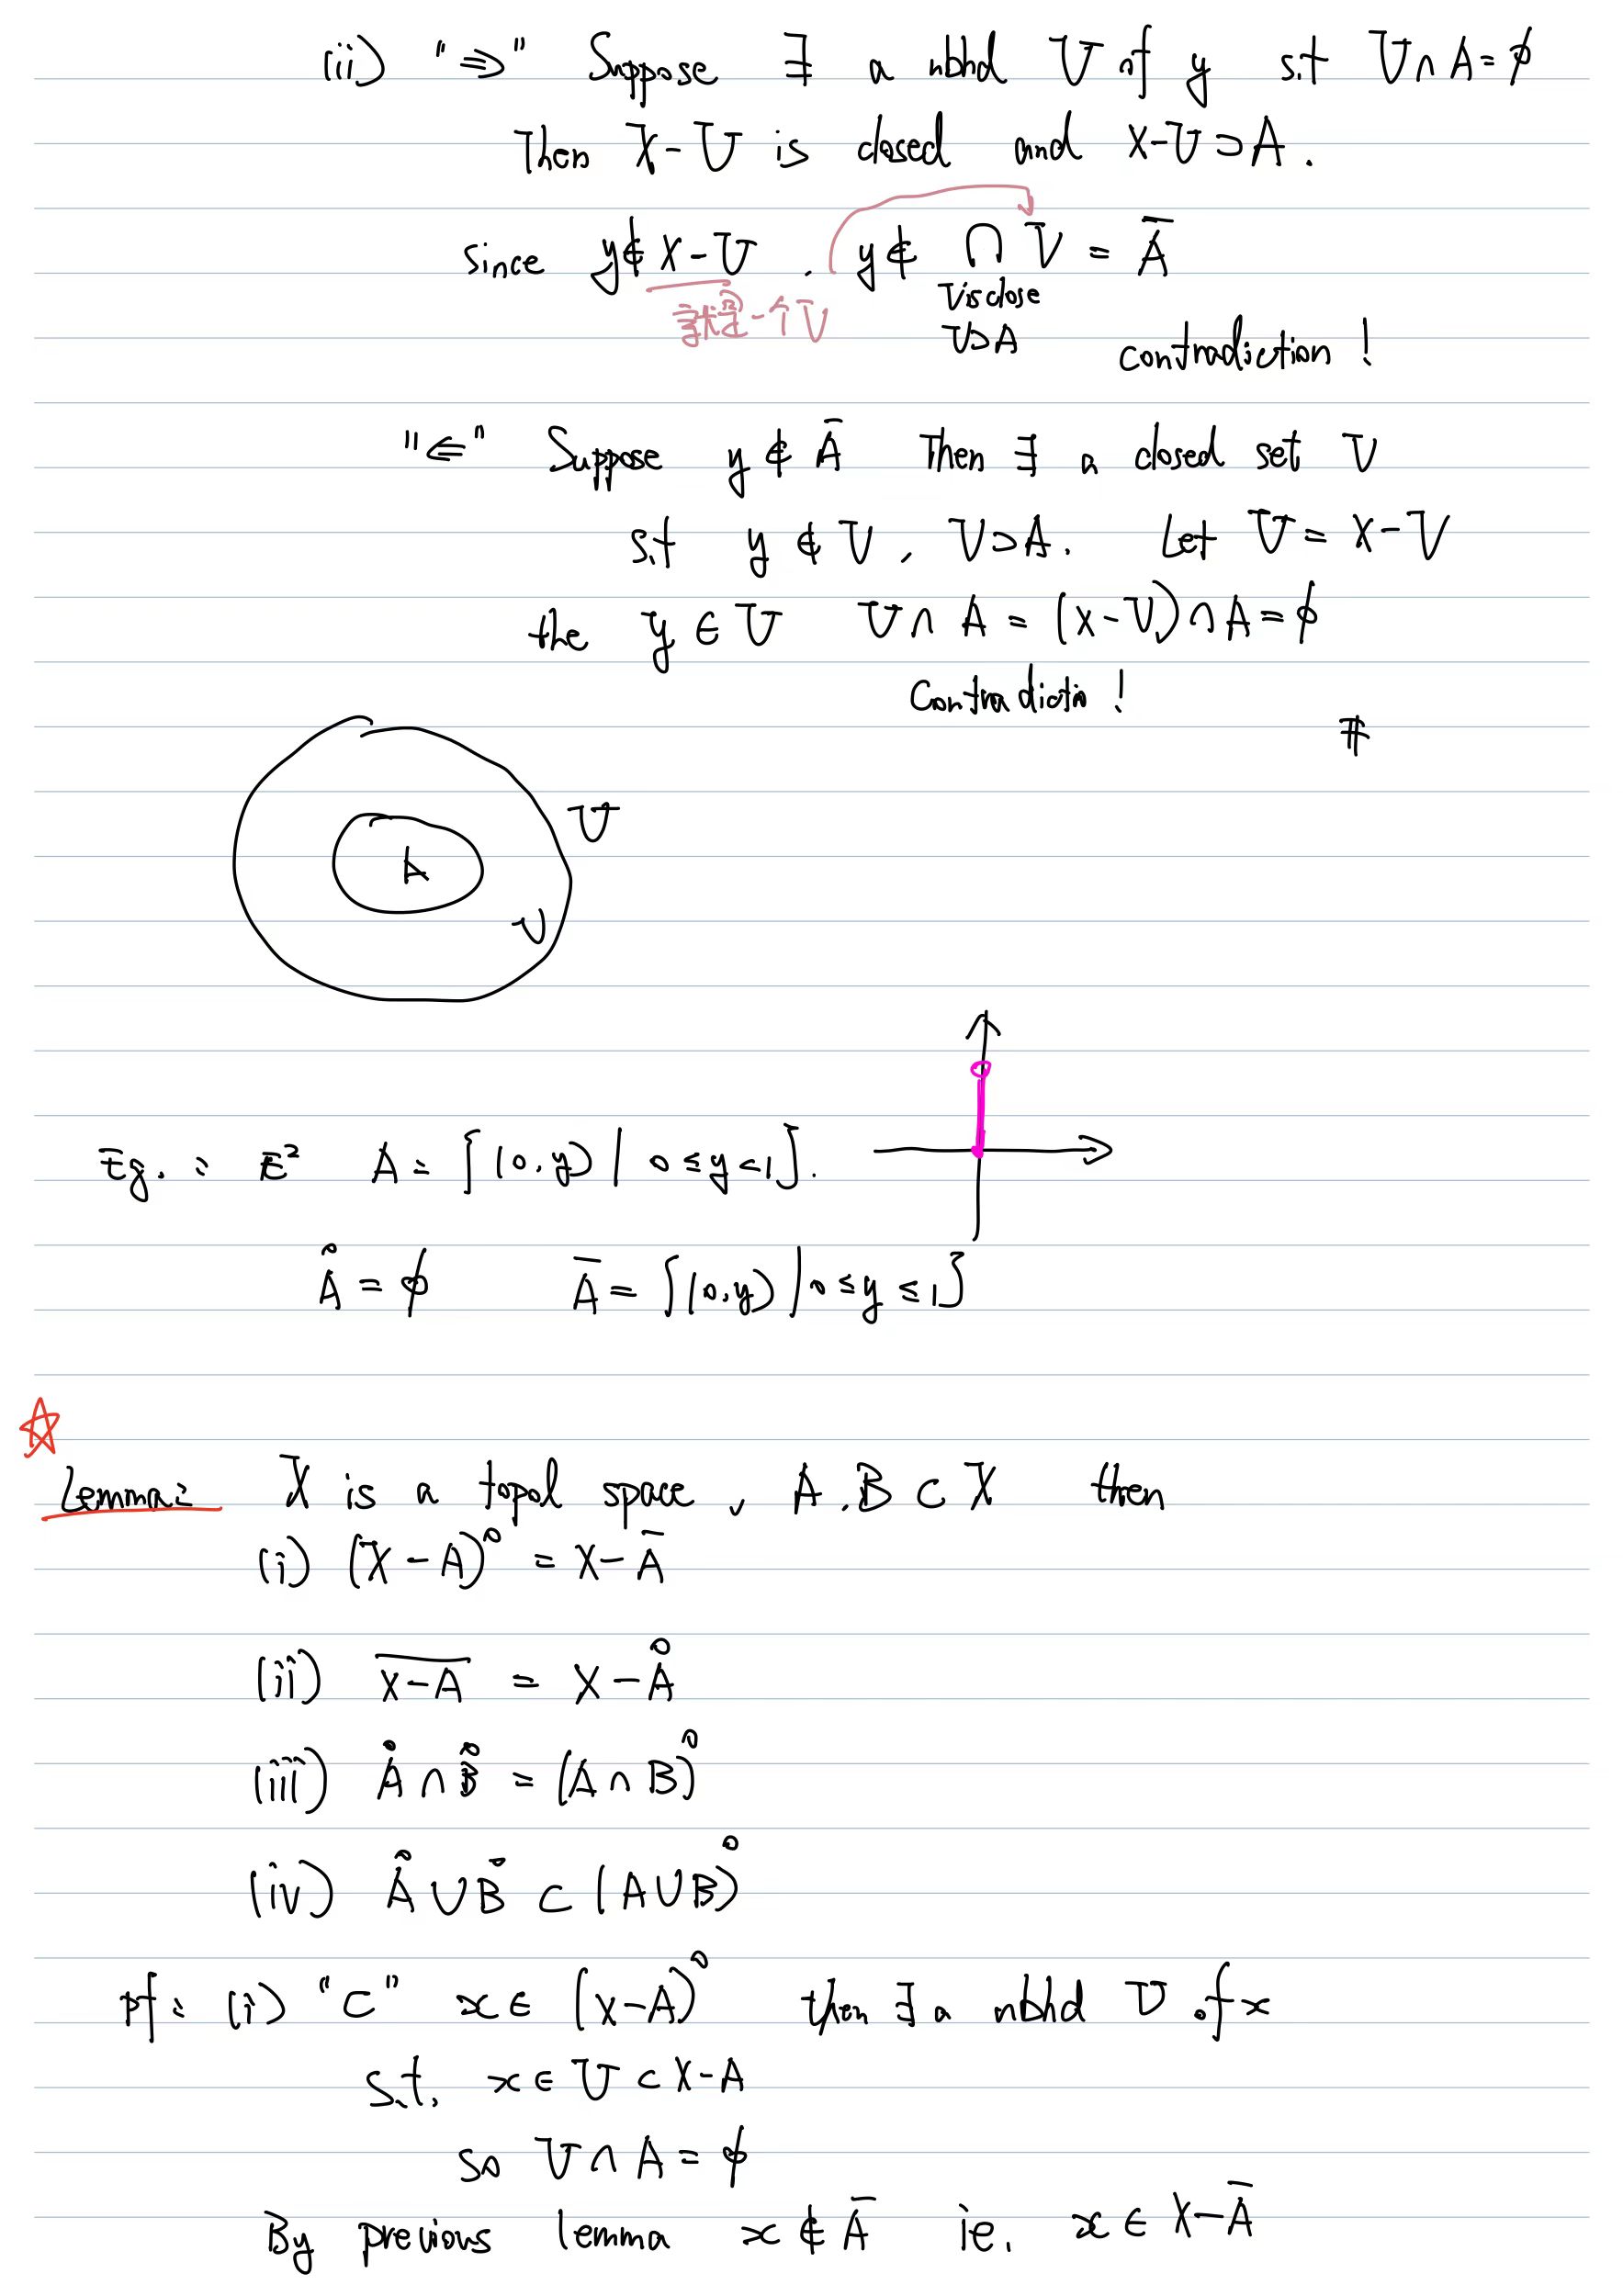 (ii) "⇒" Suppose ∃ a nbhd U of y s.t U∩A=∅
Then X-U is closed and X-U⊃A.
since y∉X-U . y∉ ∩ V = Ā
V is close
V⊃A
就是一个V
contradiction !
"⇐" Suppose y∉Ā Then ∃ a closed set V
s.t y∉V, V⊃A. Let U = X-V
the y∈U U∩A = (X-V)∩A=∅
Contradictio !
#
U
A
V
Eg. : E² A = {(0,y) | 0≤y<1}.
Å = ∅ Ā = {(0,y) | 0≤y≤1}
Lemma: X is a topol space, A,B⊂X then
(i) (X-A)° = X-Ā
(ii) \overline{X-A} = X-Å
(iii) Å∩B̊ = (A∩B)°
(iv) Å∪B̊ ⊂ (A∪B)°
Pf: (i) "⊂" x∈(X-A)° then ∃ a nbhd U of x
s.t. x∈U⊂X-A
so U∩A=∅
By previous lemma x∉Ā ie. x∈X-Ā